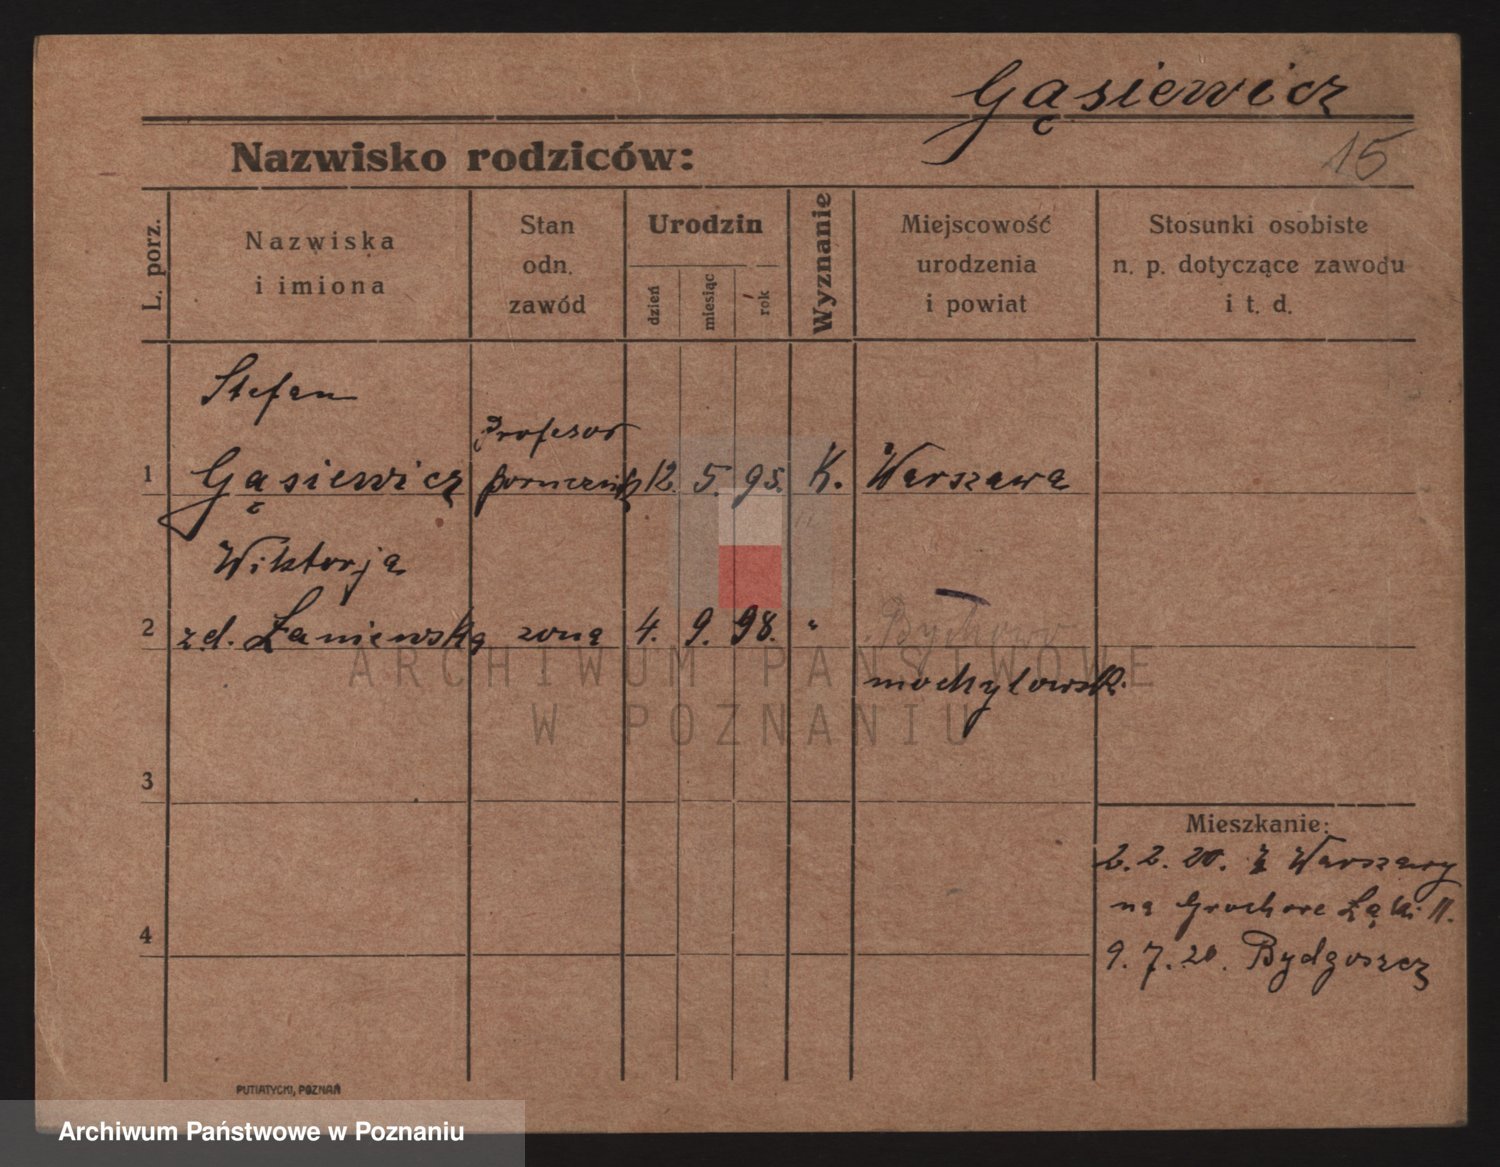 Gąsiewicz
15
Nazwisko rodziców:
L. porz.
Nazwiska
i imiona
Stan
odn.
zawód
Urodzin
dzień
miesiąc
rok
Wyznanie
Miejscowość
urodzenia
i powiat
Stosunki osobiste
n. p. dotyczące zawodu
i t. d.
Stefan
Profesor
1 Gąsiewicz porucznik 12. 5. 95. K. Warszawa
Wiktorja
2 z.d. Łaniewska żona 4. 9. 98. " Bychowo
mochylowsk.
3
Mieszkanie:
2.2.20. z Warszawy
na Grochowe Łąki 11.
4
9.7.20. Bydgoszcz
PUTIATYCKI, POZNAŃ
ARCHIWUM PAŃSTWOWE
W POZNANIU
Archiwum Państwowe w Poznaniu